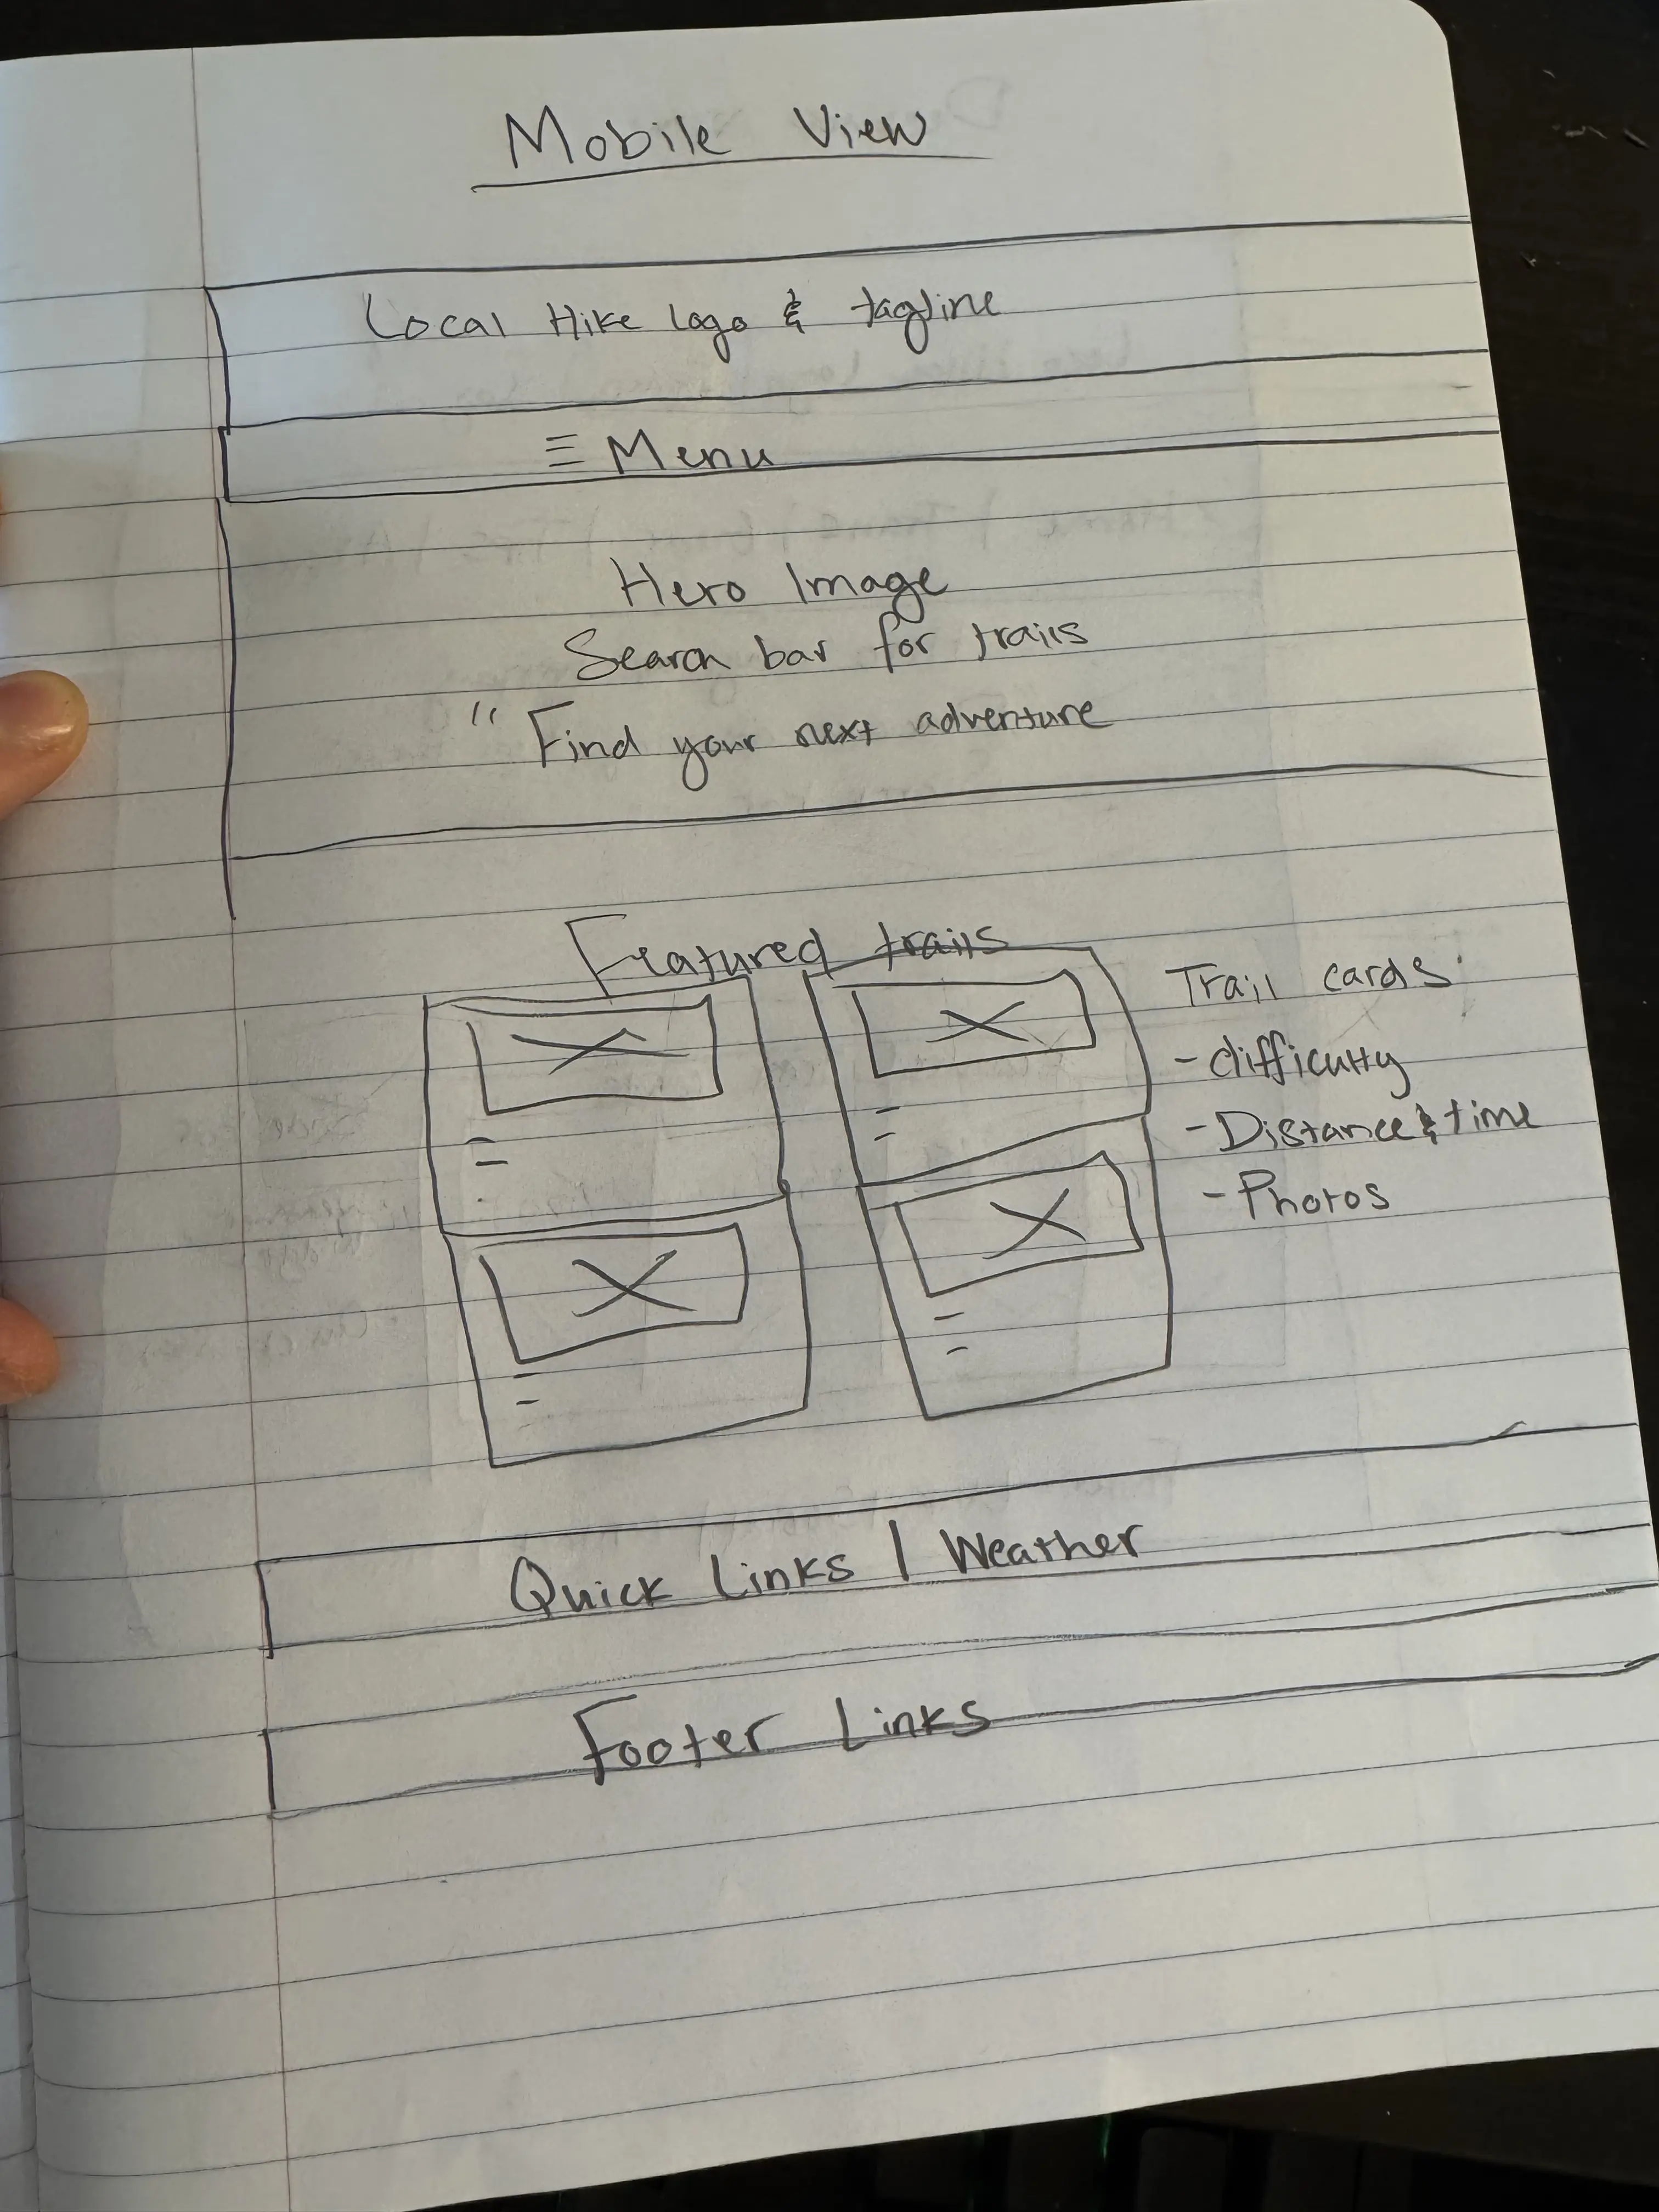 Mobile View
Local Hike logo & tagline
≡ Menu
Hero Image
Search bar for trails
" Find your next adventure
Featured trails
Trail cards:
- difficulty
- Distance & time
- Photos
Quick Links | Weather
Footer Links